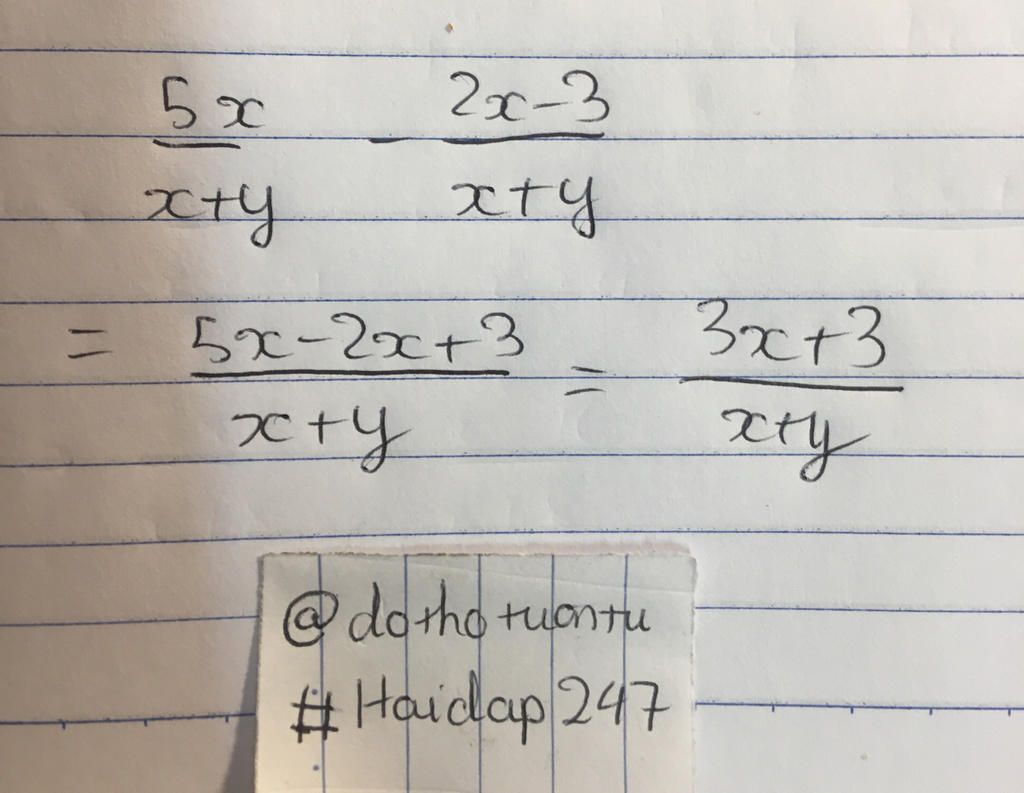 5x/x+y - 2x-3/x+y
= 5x-2x+3/x+y = 3x+3/x+y
@dothotuontu
#Haidap247